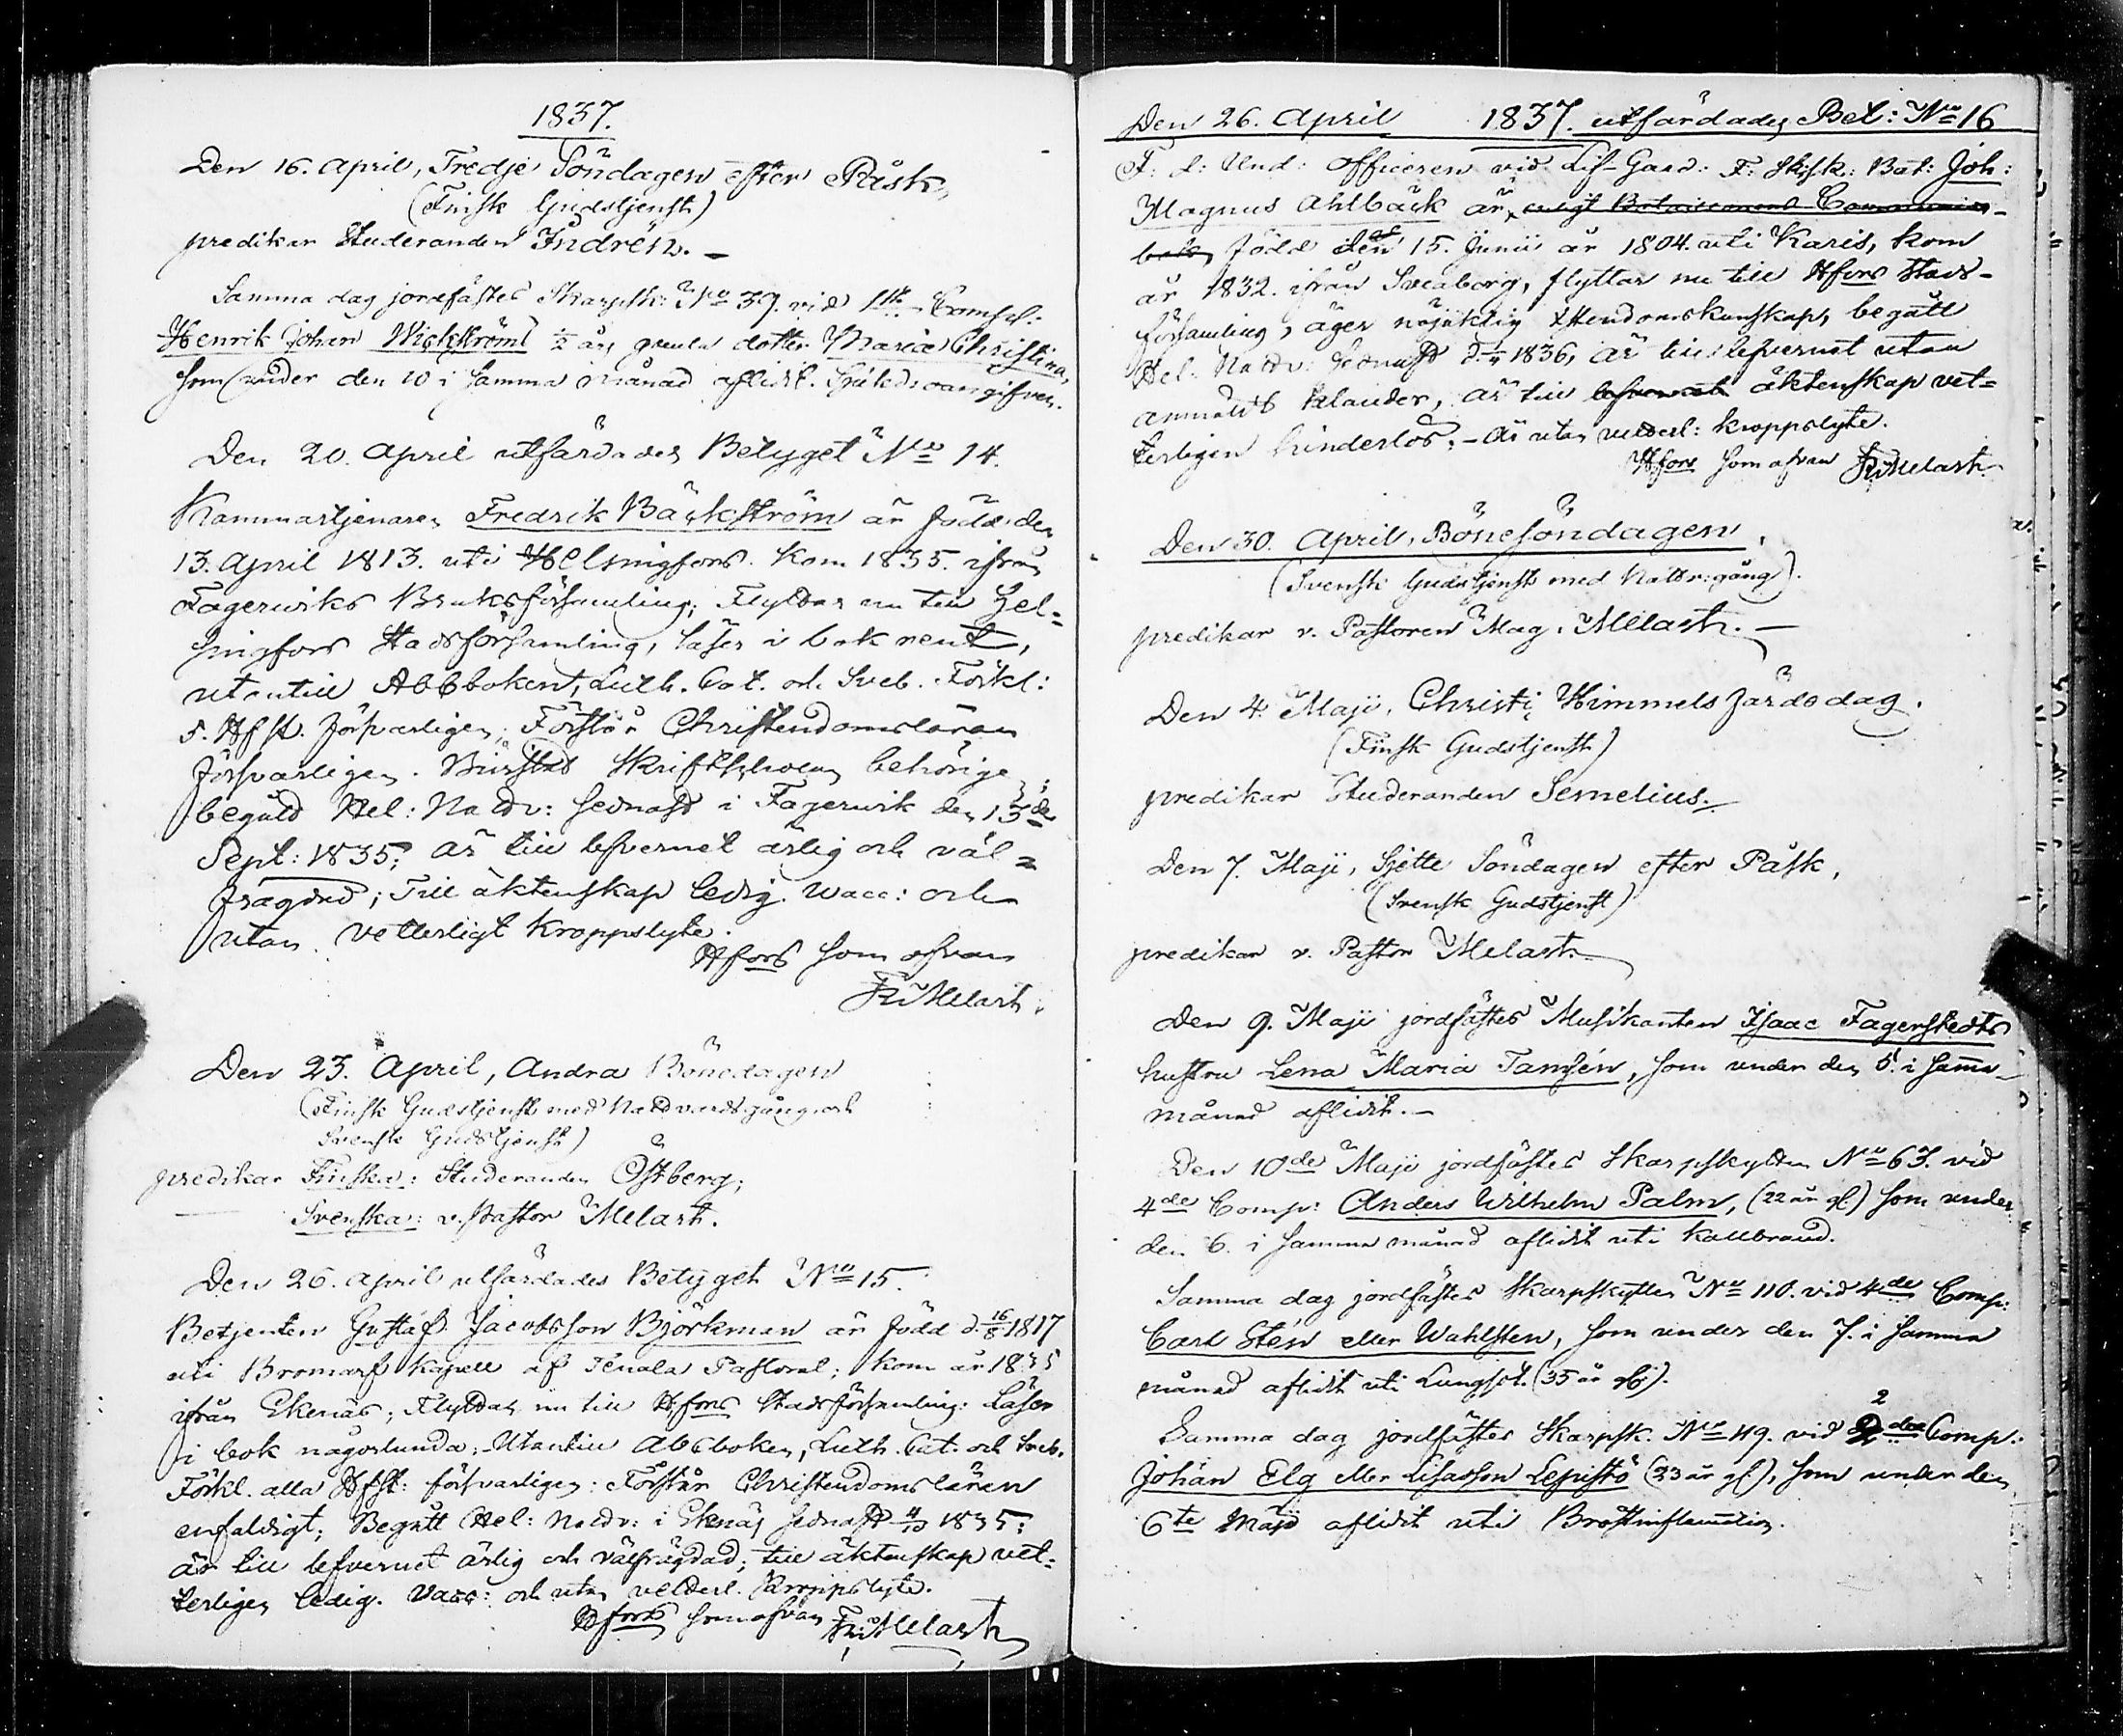 1837.
Den 16. April, Tredje Söndagen efter Påsk,
(Finsk Gudstjenst)
predikar Studeranden Indrén. –
Samma dag jordfästes Skarpsk: No 39. vid 1sta Comp:
Henrik Johan Wickström ½ år gamla dotter Maria Christina,
som under den 10 i samma månad aflidit. Sjukd: oangifven.
Den 20. April utfärdades Betyget No 14.
Kammartjenaren Fredrik Bäckström är född den
13. April 1813. uti Helsingfors. Kom 1835. ifrån
Fagerwiks Bruksförsamling; Flyttar nu till Hel=
singfors Stadsförsamling, läser i bok rent,
utantill Abcboken, Luth. Cat. och Sveb. Förkl:
5. Hfst. försvarligen; Förstår Christendomsläran
försvarligen. Bivistat Skriftskolan behörigen;
begått Hel: Nattv: sednast i Fagerwik den 13de
Sept: 1835; är till lefvernet ärlig och väl=
frägdad; Till äktenskap ledig. Wacc: och
utan vetterligt kroppslyte.
Hfors som ofvan
Fr: Melart.
Den 23. April, Andra Bönedagen
(Finsk Gudstjenst med Nattvardsgång och
Svensk Gudstjenst)
predikar Finska: Studeranden Östberg;
Svenska: v. Pastor Melart.
Den 26. April utfärdades Betyget No 15.
Betjenten Gustaf Jacobsson Björkman är född d. 16/8 1817
uti Bromarf Kapell af Tenala Pastorat; kom år 1835
ifrån Ekenäs; Flyttar nu till Hfors Stadsförsamling: Läser
i bok någorlunda; Utantill Abcboken, Luth. Cat. och Sveb.
Förkl. alla Hfst: försvarligen: Förstår Christendomsläran
enfaldigt; Begått Hel: Nattv: i Ekenäs sednast 4/10 1835;
är till lefvernet ärlig och välfrägdad; till äktenskap vet=
terligen ledig. Vacc: och utan vetterl. kroppslyte.
Hfors som ofvan Fr: Melart
Den 26. April 1837. utfärdades Bet: No 16
F. d: Und: Officeren vid Lif-Gard: F: Sksk: Bat: Joh:
Magnus Ahlbäck är, enligt Bataillonens Communion-
bok, född den 15. Junii år 1804. uti Karis, kom
år 1832. ifrån Sveaborg, flyttar nu till Hfors Stads-
församling, äger nöjaktig Xstendomskunskap, begått
Hel. Nattv: sednast 1836, är till lefvernet utan
anmäldt klander, är till lefvernet äktenskap vet=
terligen hinderlös; – är utan vetterl: kroppslyte.
Hfors som ofvan Fr: Melart.
Den 30. April, Bönesöndagen,
(Svensk Gudstjenst med Nattv:gång).
predikar v. Pastoren Mag. Melart. –
Den 4. Maji, Christi Himmelsfärds dag.
(Finsk Gudstjenst)
predikar Studeranden Semelius.
Den 7. Maji, Sjette Söndagen efter Påsk,
(Svensk Gudstjenst)
predikar v. Pastor Melart.
Den 9. Maji jordfästes Musikanten Isaac Fagerstedts
hustru Lena Maria Tamsén, som under den 5. i samma
månad aflidit. –
Den 10de Maji jordfästes Skarpskytten No 63. vid
4de Comp: Anders Wilhelm Palm, (22 år gl) som under
den 6. i samma månad aflidit uti Kallbrand.
Samma dag jordfästes Skarpskytten No 110. vid 4de Comp:
Carl Stén eller Wahlsten, som under den 7. i samma
månad aflidit uti Lungsot. (35 år gl:).
Samma dag jordfästes Skarpsk. No 49. vid 2dra Comp:
2
Johan Elg eller Lepistö (23 år gl), som under den
6te Maji aflidit uti Bröstinflamation.